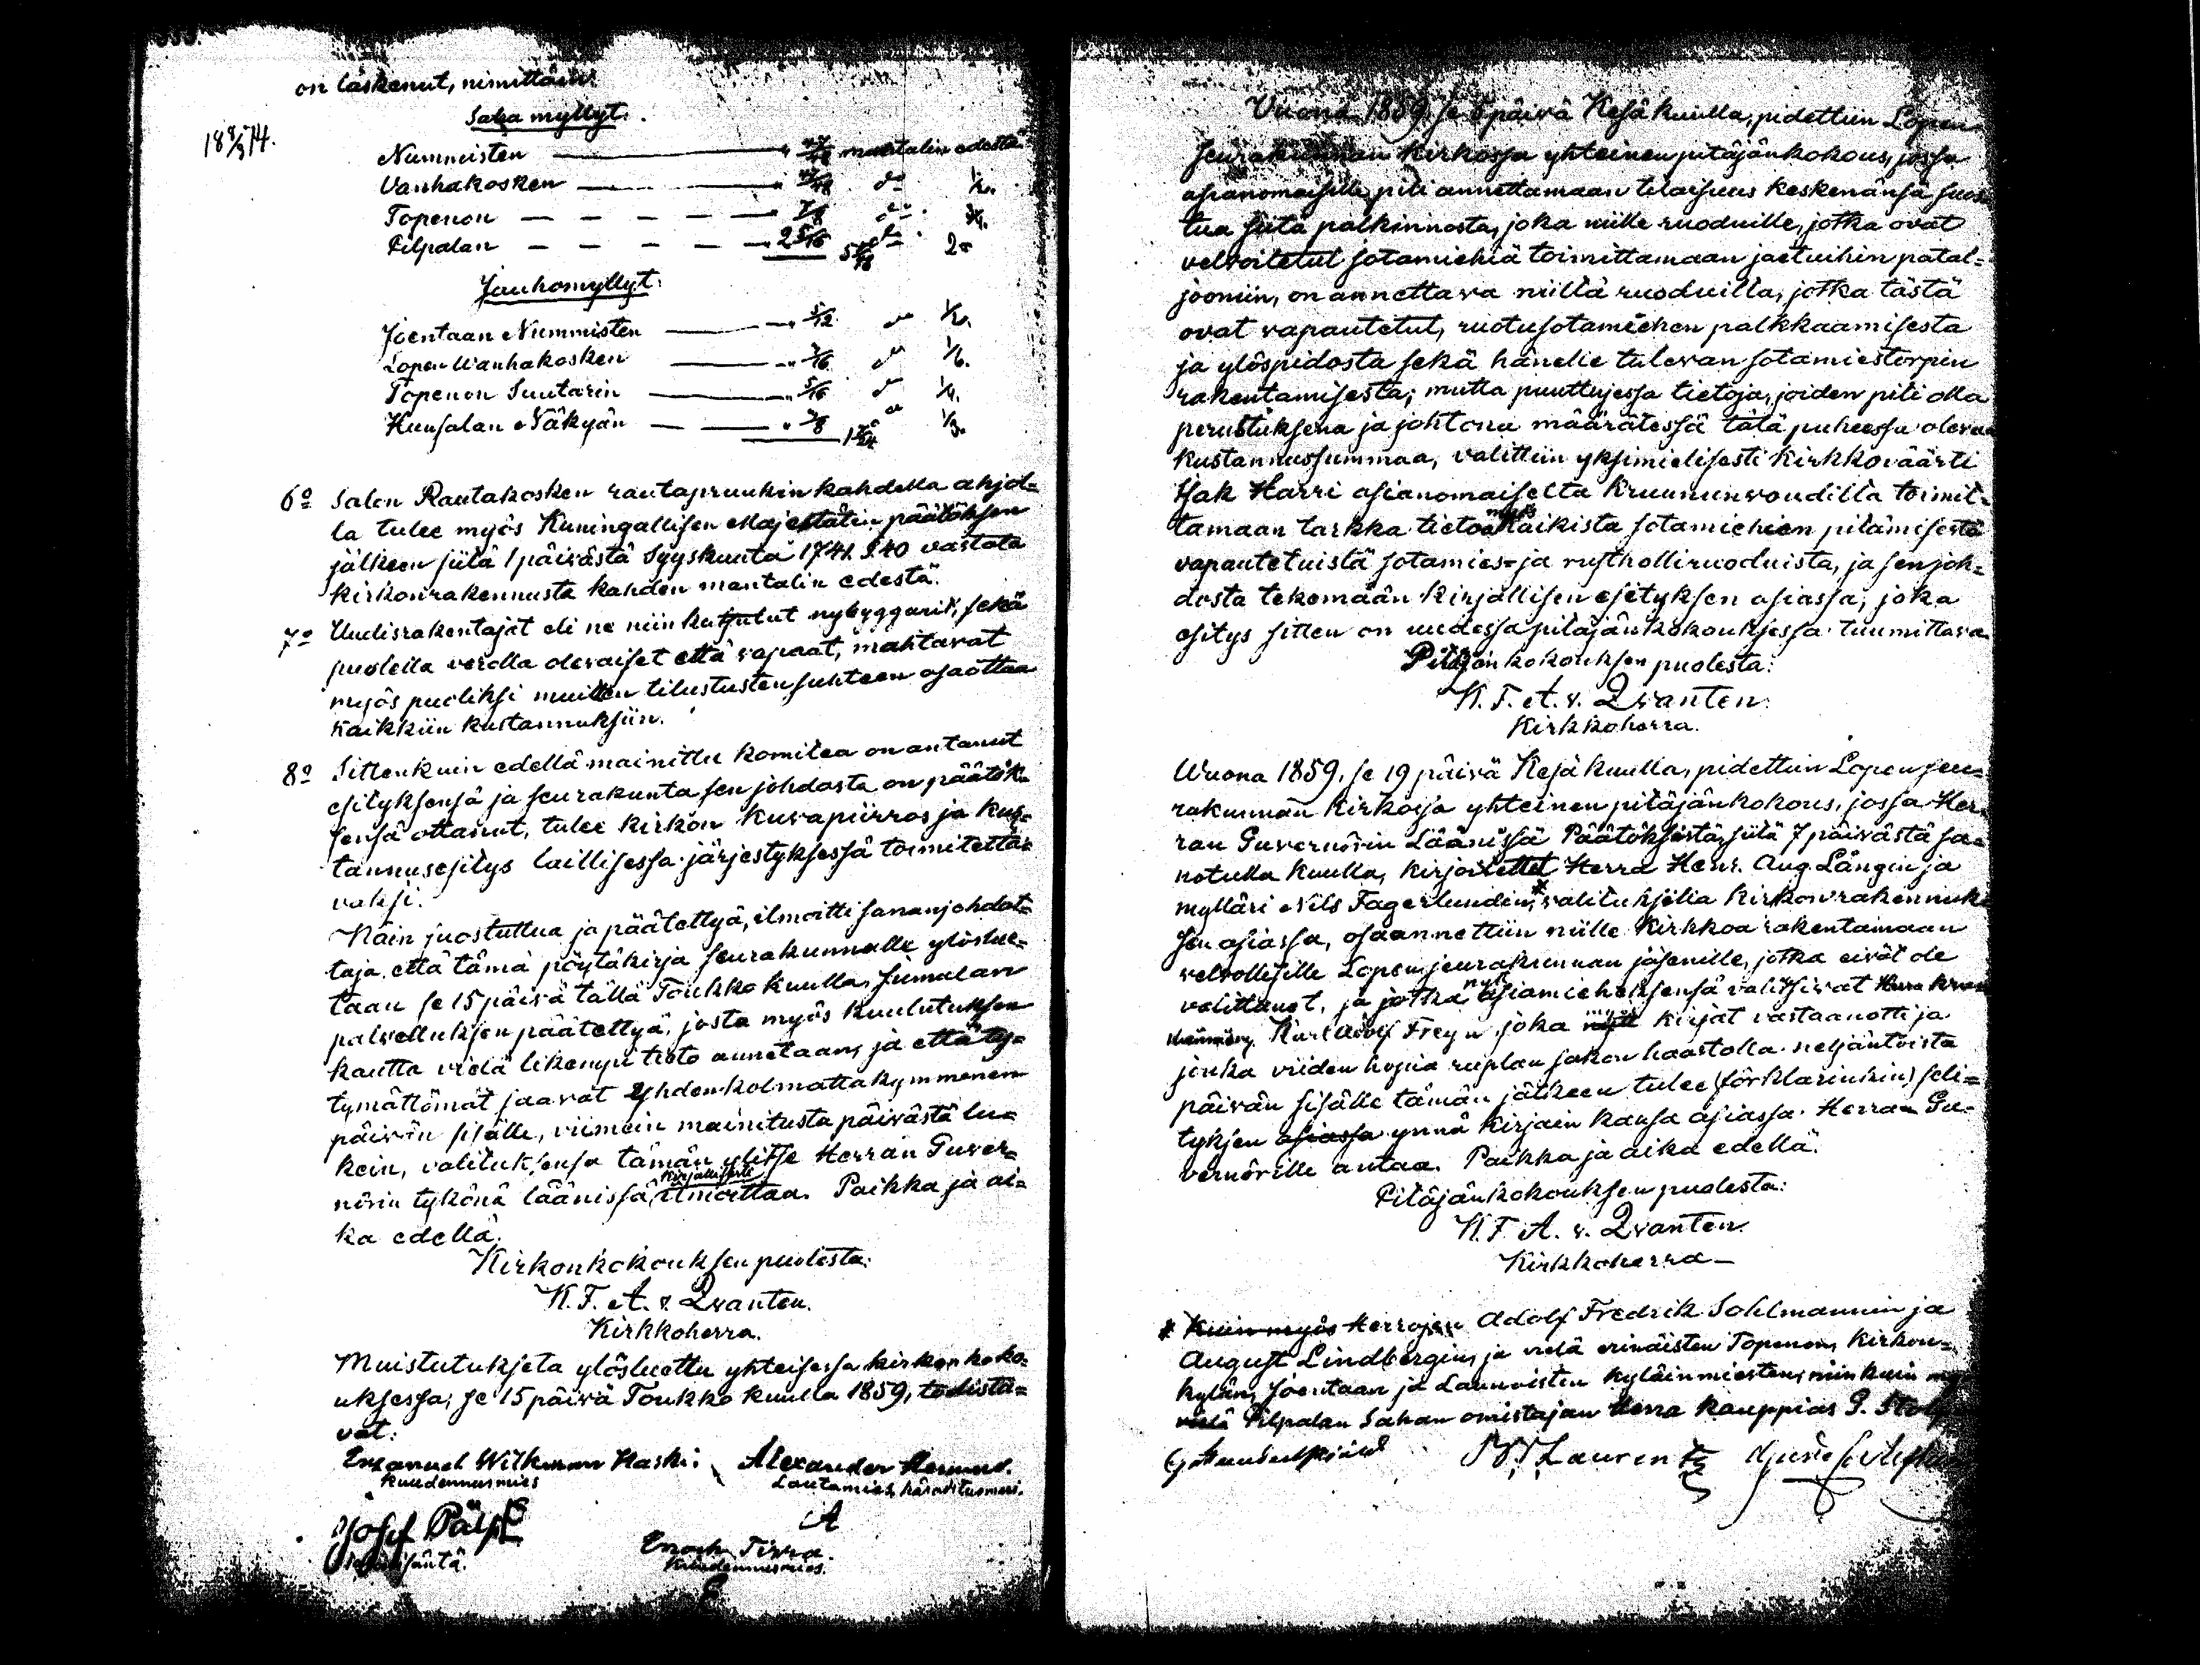 on laskenut, nimittäin:
Saha myllyt:
18 8/3 74.
Nummisten — „ mantalin edestä
Vanhakosken — „ do
Topenon — „ 7/8 do
Pilpalan — „ 2 5/16 do 2
Jauhomyllyt:
Joentaan Nummisten — „ 5/12 do 1/2.
Lopen Wanhakosken — „ do 1/6.
Topenon Suutarin — „ 5/16 do 1/4.
Hunsalan Näkyän — „ 3/8 do 1/3.
6o Salon Rautakosken rautapruukin kahdella ahjol-
la tulee myös Kuningallisen Majestätin päätöksen
jälkeen siitä 1 päivästä Syyskuuta 1741. § 40 vastata
kirkonrakennusta kahden mantalin edestä.
7o Uudisrakentajat eli ne niin kutsutut nybyggarit, sekä
puolella verolla olevaiset että vapaat, mahtavat
myös puoliksi muitten tilustusten suhteen osaottaa
kaikkiin kustannuksiin.
8o Sittenkuin edellä mainittu komitea on antanut
esityksensä ja seurakunta sen johdosta on päätök-
sensä ottanut, tulee kirkon kuvapiirros ja kus-
tannusesitys laillisessa järjestyksessä toimitetta-
vaksi.
Näin suostuttua ja päätettyä, ilmoitti sananjohdat-
taja että tämä pöytäkirja seurakunnalle ylöslue-
taan se 15 päivä tällä Toukko kuulla, Jumalan
palvelluksen päätettyä, josta myös kuulutuksen
kautta vielä likempi tieto annetaan, ja että ty-
tymättömät saavat yhdenkolmattakymmenen
päivän sisälle, viimein mainitusta päivästä lu-
kein, valituksensa tämän ylitse Herran Guver-
nörin tykönä läänissä kirjallisesti ilmoittaa. Paikka ja ai-
ka edellä.
Kirkonkokouksen puolesta:
K. F. A. v. Qvanten.
Kirkkoherra.
Muistutukseta ylösluettu yhteisessa kirkonkoko-
uksessa, se 15 päivä Toukko kuulla 1859, todista-
vat:
Emanuel Wilkman Haski Alexander
Kuudennusmies Lautamies
Josef
isäntä.
A
Enoch Tirra.
Kuudennusmies.
Vuona 1859, se 5 päivä Kesäkuulla, pidettiin Lopen
seurakunnan kirkossa yhteinen pitäjänkokous, jossa
asianomaisille piti annettamaan tilaisuus keskenänsä suos-
tua siitä palkinnosta, joka niille ruoduille, jotka ovat
velvoitetut sotamiehiä toimittamaan jaetuihin patal-
jooniin, on annettava niiltä ruoduilla, jotka tästä
ovat vapautetut, ruotusotamiehen palkkaamisesta
ja ylöspidosta sekä hänelle tulevan sotamiestorpin
rakentamisesta; mutta puuttujessa tietoja, joiden piti olla
perustuksena ja johtona määrätessä tätä puheessa olevaa
kustannussummaa, valittiin yksimielisesti kirkkoväärti
Isak Harri asianomaiselta kruununvoudilla toimit-
tamaan tarkka tieto myös kaikista sotamiehien pitämisestä
vapautetuistä sotamies- ja rusthollirruoduista, ja sen joh-
dosta tekemään kirjallisen esityksen asiassa, joka
esitys sitten on uudessa pitäjänkokouksessa tuumittava.
Pitäjänkokouksen puolesta:
K. F. A. v. Qvanten.
Kirkkoherra.
Wuona 1859, se 19 päivä Kesäkuulla, pidettiin Lopen seu-
rakunnan kirkossa yhteinen pitäjänkokous, jossa Her-
ran Guvernörin Läänissä Päätöksestä, siitä 7 päivästä sa-
notulla kuulla, kirjoitettet Herra Henr. Aug. Långin ja
mylläri Nils Fagerlundin,* valituksella kirkonrakennuk-
sen asiassa, osaannettiin niille kirkkoa rakentamaan
velvollisille Lopen seurakunnan jäsenille, jotka eivät ole
valittanet, ja jotka nyt asiamieheksensä valitsivat Herra
Karl Adolf Freyn joka myös kirjat vastaanotti ja
jonka viiden hopia ruplan sakon haastolla neljäntoista
päivän sisälle tämän jälkeen tulee (förklarinkin) seli-
tyksen asiassa ynnä kirjain kansa asiassa Herran Gu-
vernörille antaa. Paikka ja aika edellä.
Pitäjänkokouksen puolesta:
K. F. A. v. Qvanten.
Kirkkoherra —
* Kuin myös Herrojen Adolf Fredrik Sohlmannin ja
August Lindbergin, ja vielä erinäisten Topenon, Kirkon-
kylän, Joentaan ja Launoisten kyläinmiesten, niinkuin
vielä Pilpalan Sahan omistajan Herra Kauppias P.
Lauren